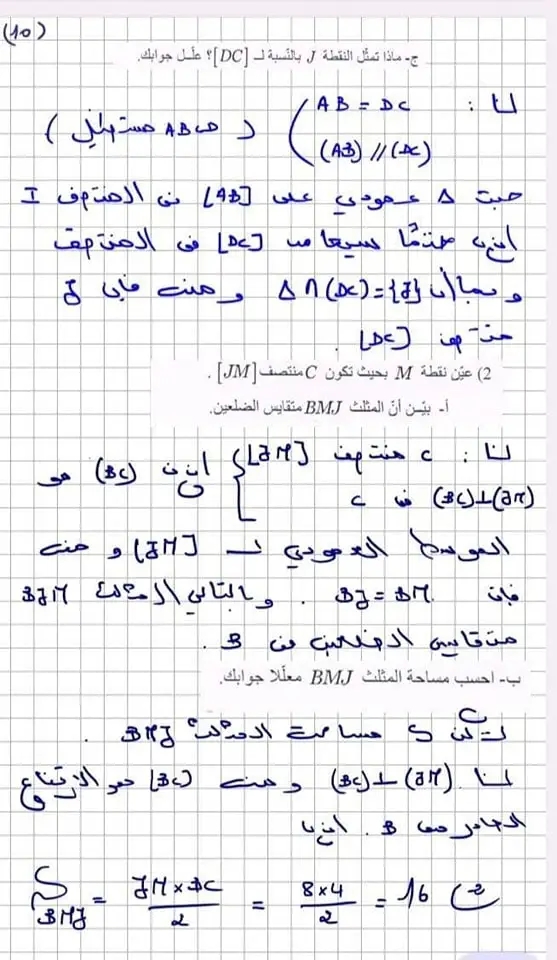 (10)
ج- ماذا تمثّل النقطة J بالنّسبة لـ [DC]؟ علّل جوابك.
لنا : AB = DC
(AB) // (DC) ( ABCD مستطيل )
حيث Δ عمودي على [AB] في المنتصف I
إذن حتمًا سيقطع [DC] في المنتصف
وبما أن Δ ∩ (DC) = {J} ومنه فإن J
منتصف [DC] .
2) عيّن نقطة M بحيث تكون C منتصف [JM] .
أ- بيّـن أنّ المثلث BMJ متقايس الضلعين.
لنا : C منتصف [JM] إذن (BC) هو
(BC) ⊥ (JM) في C
الموسط العمودي لـ [JM] ومنه
فإن BJ = BM . وبالتالي المثلث BJM
متقايس الضلعين في B .
ب- احسب مساحة المثلث BMJ معلّلا جوابك.
ليكن S مساحة المثلث BMJ .
لنا (BC) ⊥ (JM) ومنه [BC] هو الارتفاع
الصادر من B . إذن
S BMJ = JM × BC / 2 = 8 × 4 / 2 = 16